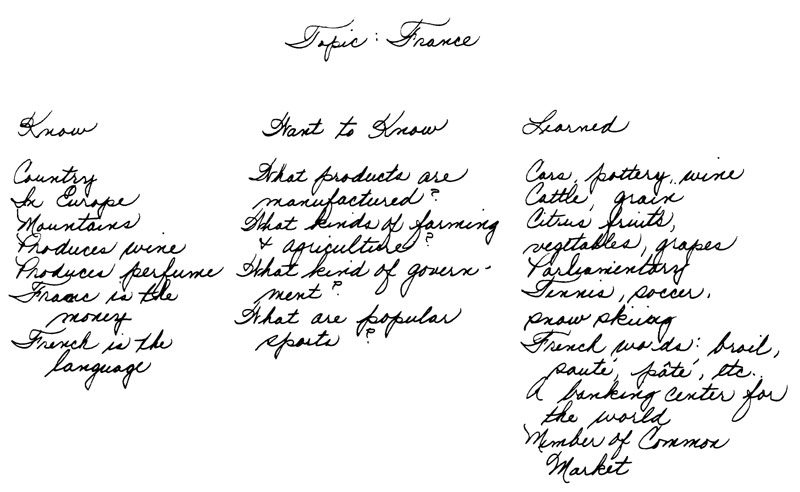 Topic: France
Know
Country
In Europe
Mountains
Produces wine
Produces perfume
Franc is the
money
French is the
language
Want to Know
What products are
manufactured?
What kinds of farming
& agriculture?
What kind of govern-
ment?
What are popular
sports?
Learned
Cars, pottery, wine
Cattle, grain
Citrus fruits,
vegetables, grapes
Parliamentary
Tennis, soccer,
snow skiing
French words: broil,
sauté, pâté, etc.
A banking center for
the world
Member of Common
Market